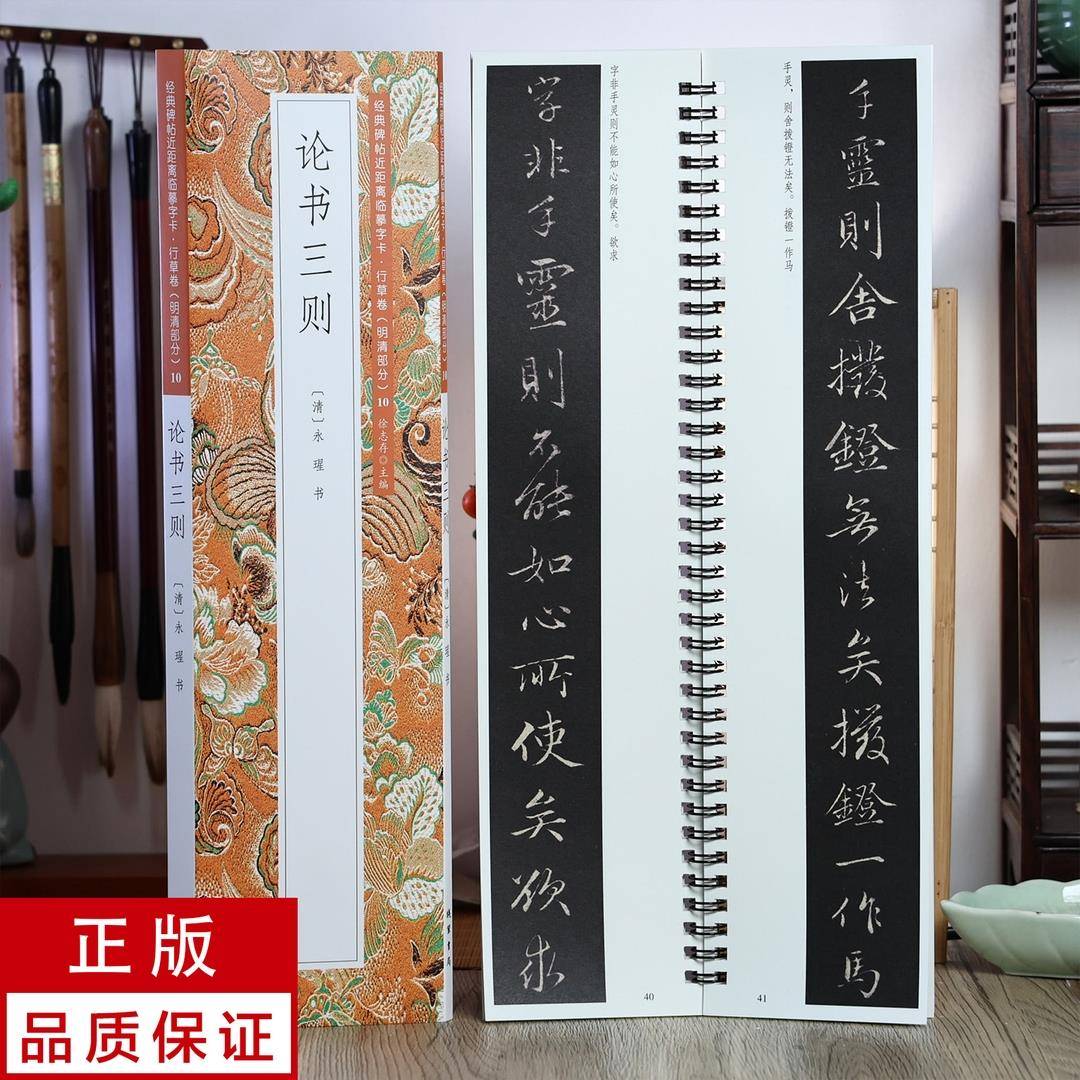 经典碑帖近距离临摹字卡·行草卷（明清部分）10
论书三则
〔清〕永瑆 书
论书三则
〔清〕永瑆 书
经典碑帖近距离临摹字卡·行草卷（明清部分）10
徐志存◎主编
字非手灵则不能如心所使矣。欲求
字非手靈則不能如心所使矣欲求
40
手灵，则舍拨镫无法矣。拨镫一作马
手靈則舍撥鐙無法矣撥鐙一作馬
41
正版
品质保证